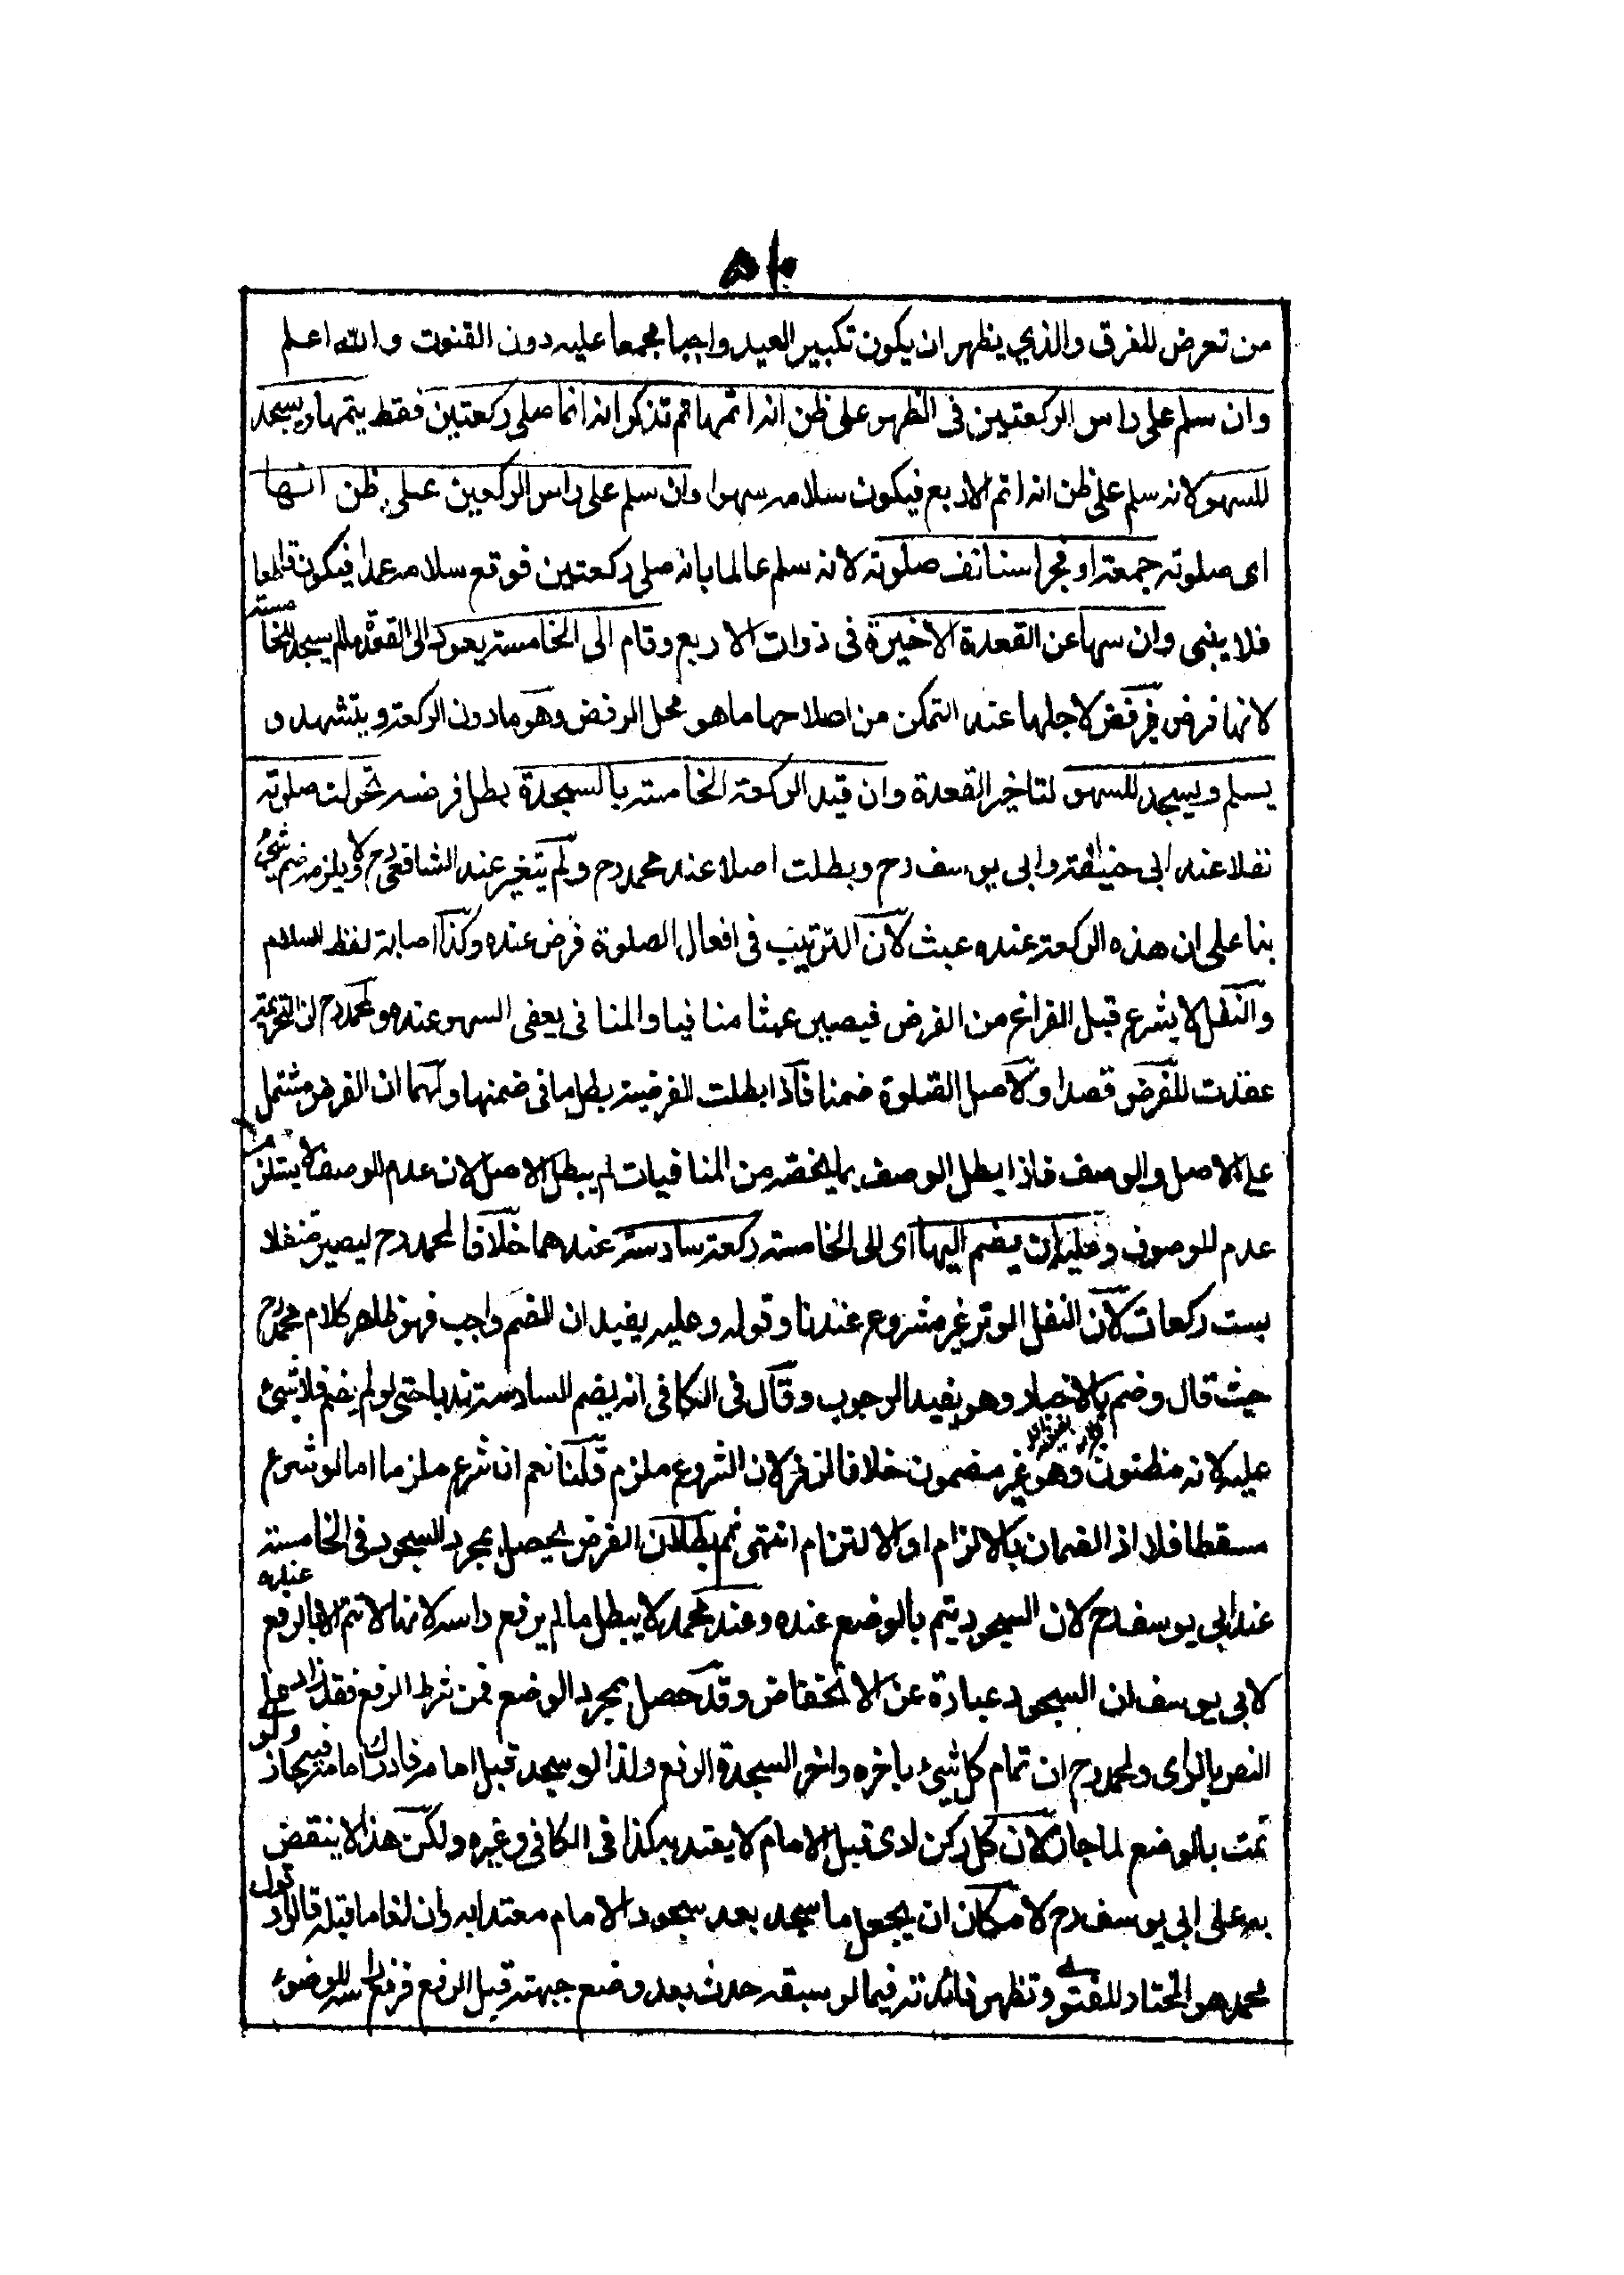 من تعرض للفرق والذي يظهر ان يكون تكبير العيد واجبا مجمعا عليه دون القنوت والله اعلم
وان سلم على راس الركعتين فى الظهر على ظن انه اتمها ثم تذكر انه انما صلى ركعتين فقط يتمها ويسجد
للسهو لانه سلم على ظن انه اتم الاربع فيكون سلامه سهوا وان سلم على راس الركعتين على ظن انها
اى صلوته جمعة او فجر استانف صلوته لانه سلم عالما بانه صلى ركعتين فوقع سلامه عمدا فيكون قاطعا
فلا يبنى وان سها عن القعدة الاخيرة فى ذوات الاربع وقام الى الخامسة يعود الى القعدة ما لم يسجد للخامسة
لانها فرض فيرفض لاجلها عند التمكن من اصلاحها ما هو محل الرفض وهو ما دون الركعة ويتشهد و
يسلم ويسجد للسهو لتاخير القعدة وان قيد الركعة الخامسة بالسجدة بطل فرضه تحولت صلوته
نفلا عند ابى حنيفة وابى يوسف رح وبطلت اصلا عند محمد رح ولم يتغير عند الشافعى رح ولا يلزمه ضم شئ
بنا على ان هذه الركعة عنده عبث لان الترتيب فى افعال الصلوة فرض عنده وكذا اصابة لفظ السلام
والنفل لا يشرع قبل الفراغ من الفرض فيصير عبثا منافيا والمنافى يعفى السهو عنده ومحمد رح ان التحريمة
عقدت للفرض قصدا ولاصل الصلوة ضمنا فاذا بطلت الفرضية بطل ما فى ضمنها ولهما ان الفرض مشتمل
على الاصل والوصف فاذا بطل الوصف بما يخصه من المنافيات لم يبطل الاصل لان عدم الوصف لا يستلزم
عدم الموصوف وعليه ان يضم اليها اى الى الخامسة ركعة سادسة عندهما خلافا لمحمد رح ليصير متنفلا
بست ركعات لان النفل الوتر غير مشروع عندنا وقوله وعليه يفيد ان الضم واجب فهو ظاهر كلام محمد رح
حيث قال وضم بالاخبار وهو يفيد الوجوب وقال فى الكافى انه يضم السادسة ندبا حتى لو لم يضم فلا شئ
عليه لانه مظنون وهو غير مضمون خلافا لزفر لان الشروع ملزم قلنا نعم ان شرع ملزما اما لو شرع
مسقطا فلا اذ الضمان بالالزام او الالتزام انتهى ثم بطلان الفرض يحصل بمجرد السجود فى الخامسة
عند ابى يوسف رح لان السجود يتم بالوضع عنده وعند محمد لا يبطل ما لم يرفع راسه لانها لا تتم الا بالرفع عنده
لابى يوسف ان السجود عبارة عن الانخفاض وقد حصل بمجرد الوضع فمن شرط الرفع فقد زاد على
النص بالراى ولمحمد رح ان تمام كل شئ باخره واخر السجدة الرفع ولذا لو سجد قبل امامه فادرك امامه فيه جاز ولو
تمت بالوضع لما جاز لان كل ركن ادى قبل الامام لا يعتد به كذا فى الكافى وغيره ولكن هذا لا ينقض
به على ابى يوسف رح لامكان ان يجعل ما سجد بعد سجود الامام معتدا به وان لغا ما قبله قالوا وقول
محمد هو المختار للفتوى وتظهر فائدته فيما لو سبقه حدث بعد وضع جبهته قبل الرفع فرفع راسه للوضوء